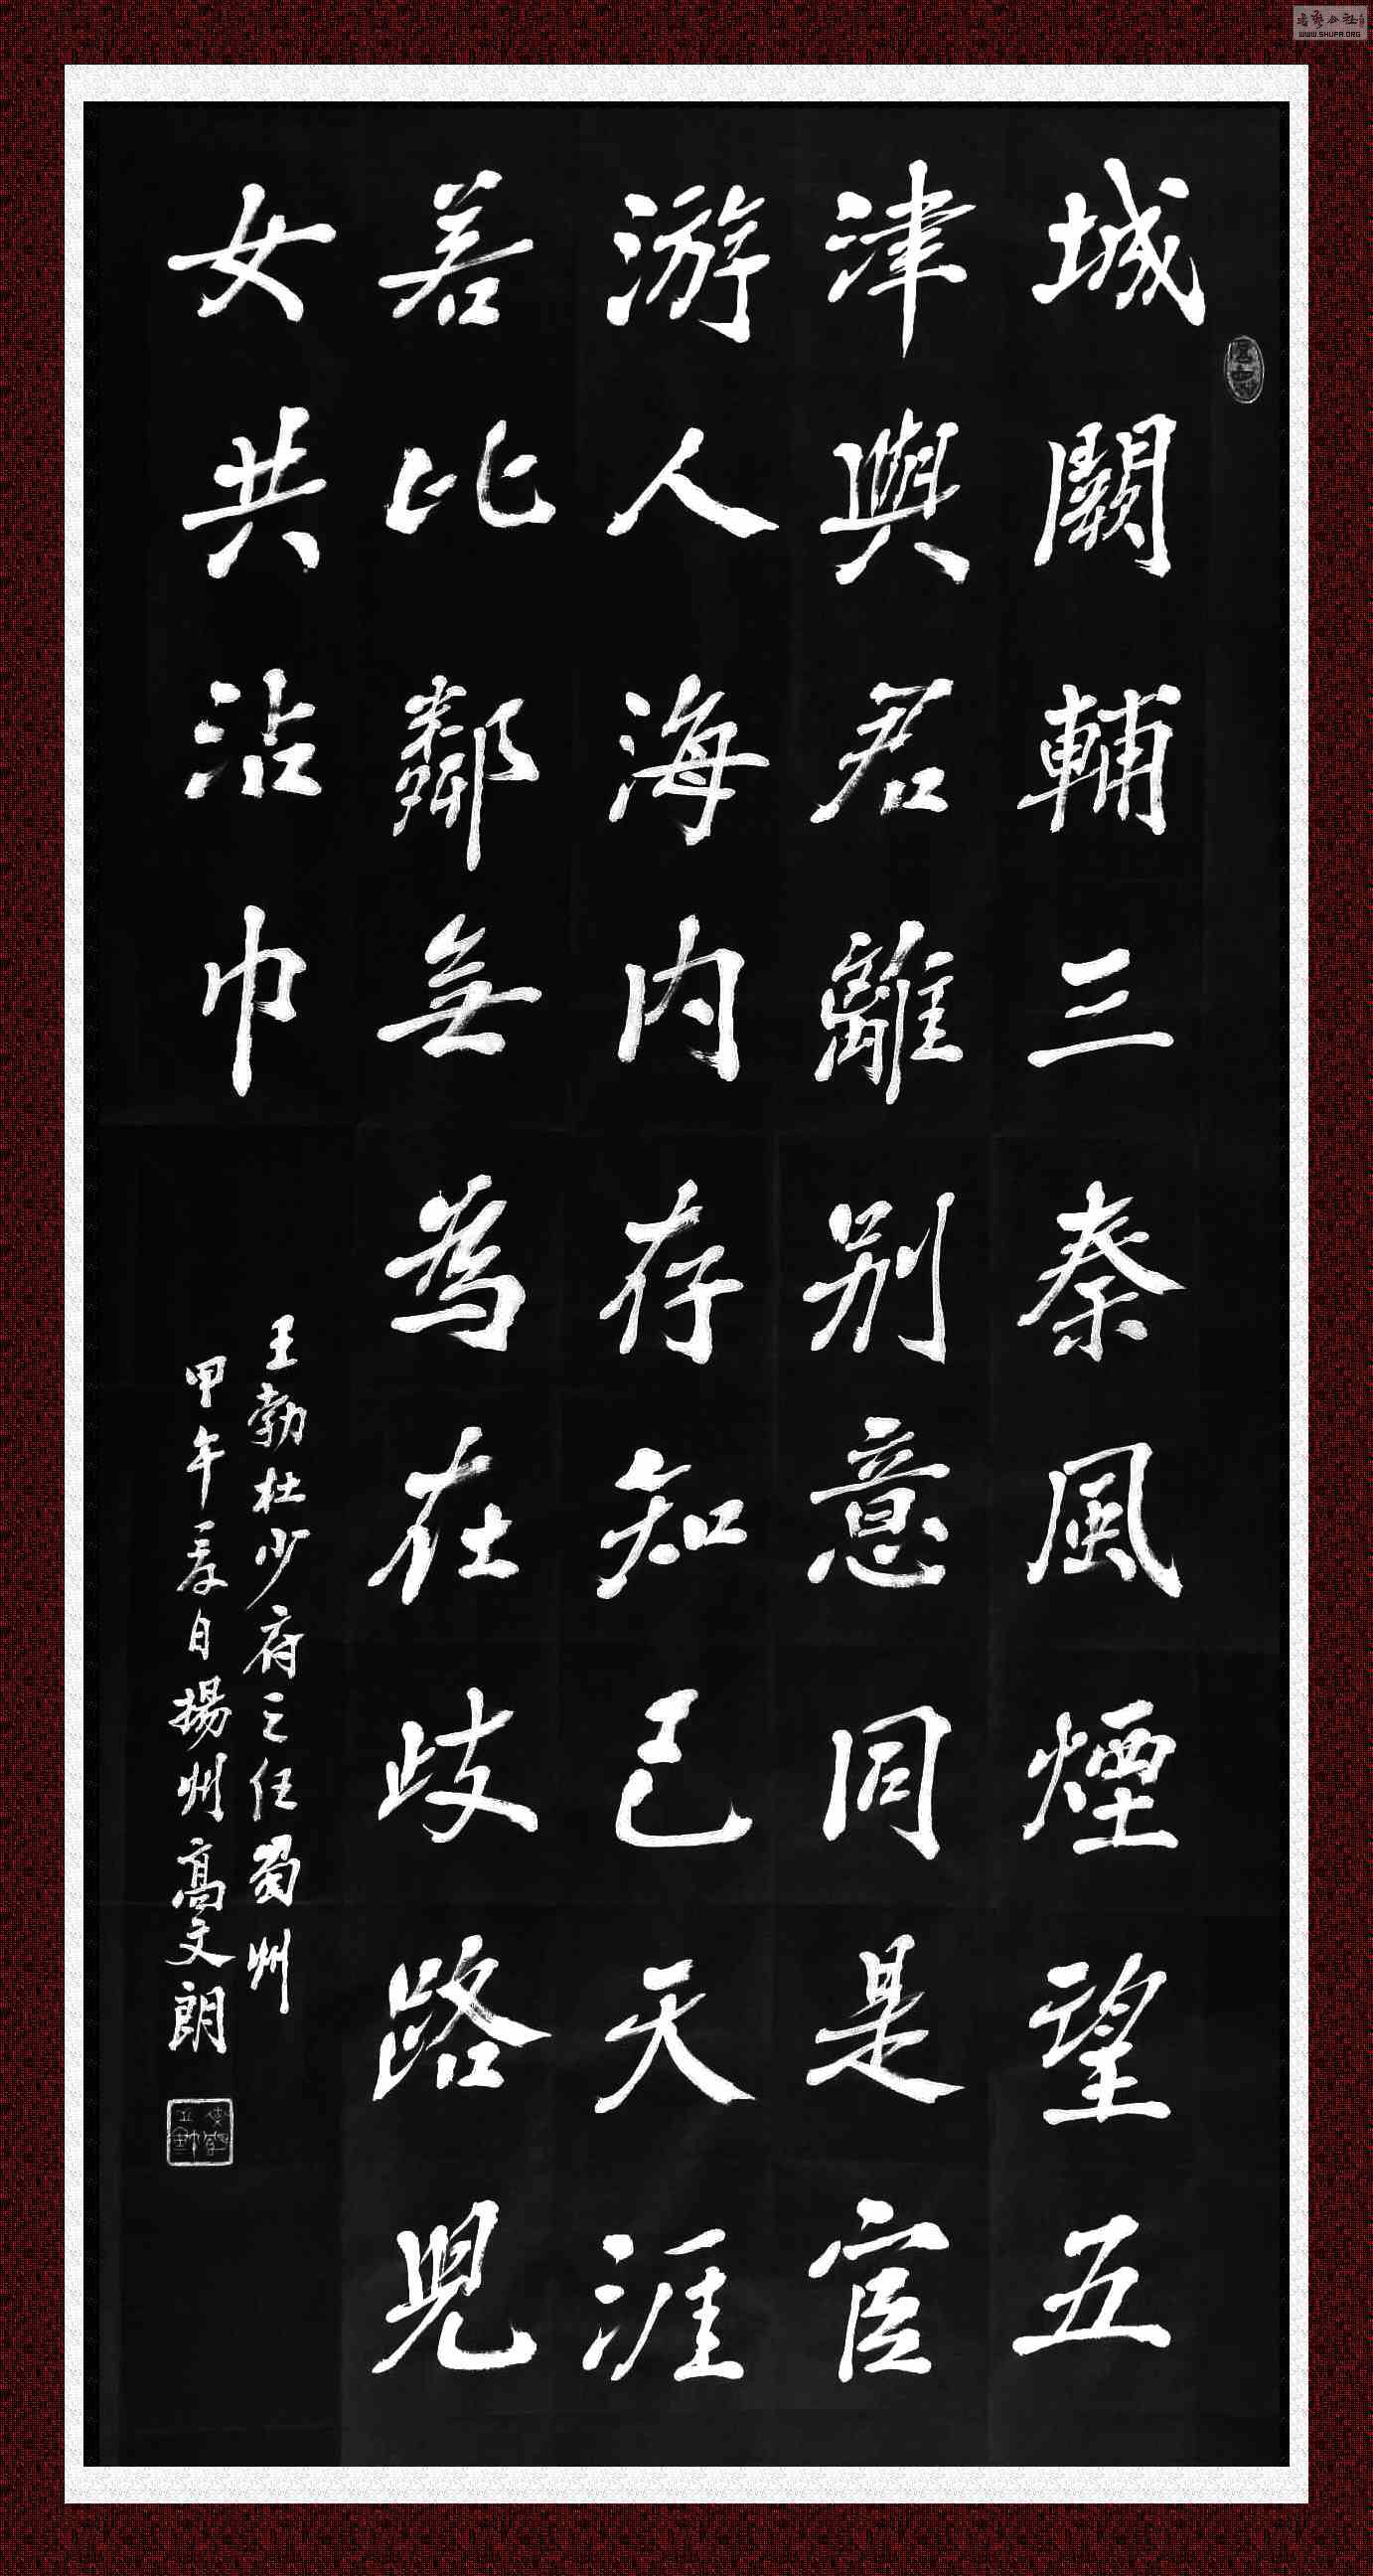 城闕輔三秦風煙望五
津與君離别意同是宦
游人海内存知己天涯
若比鄰無為在歧路兒
女共沾巾
王勃杜少府之任蜀州
甲午 自揚州高文朗
WWW.SHUFA.ORG